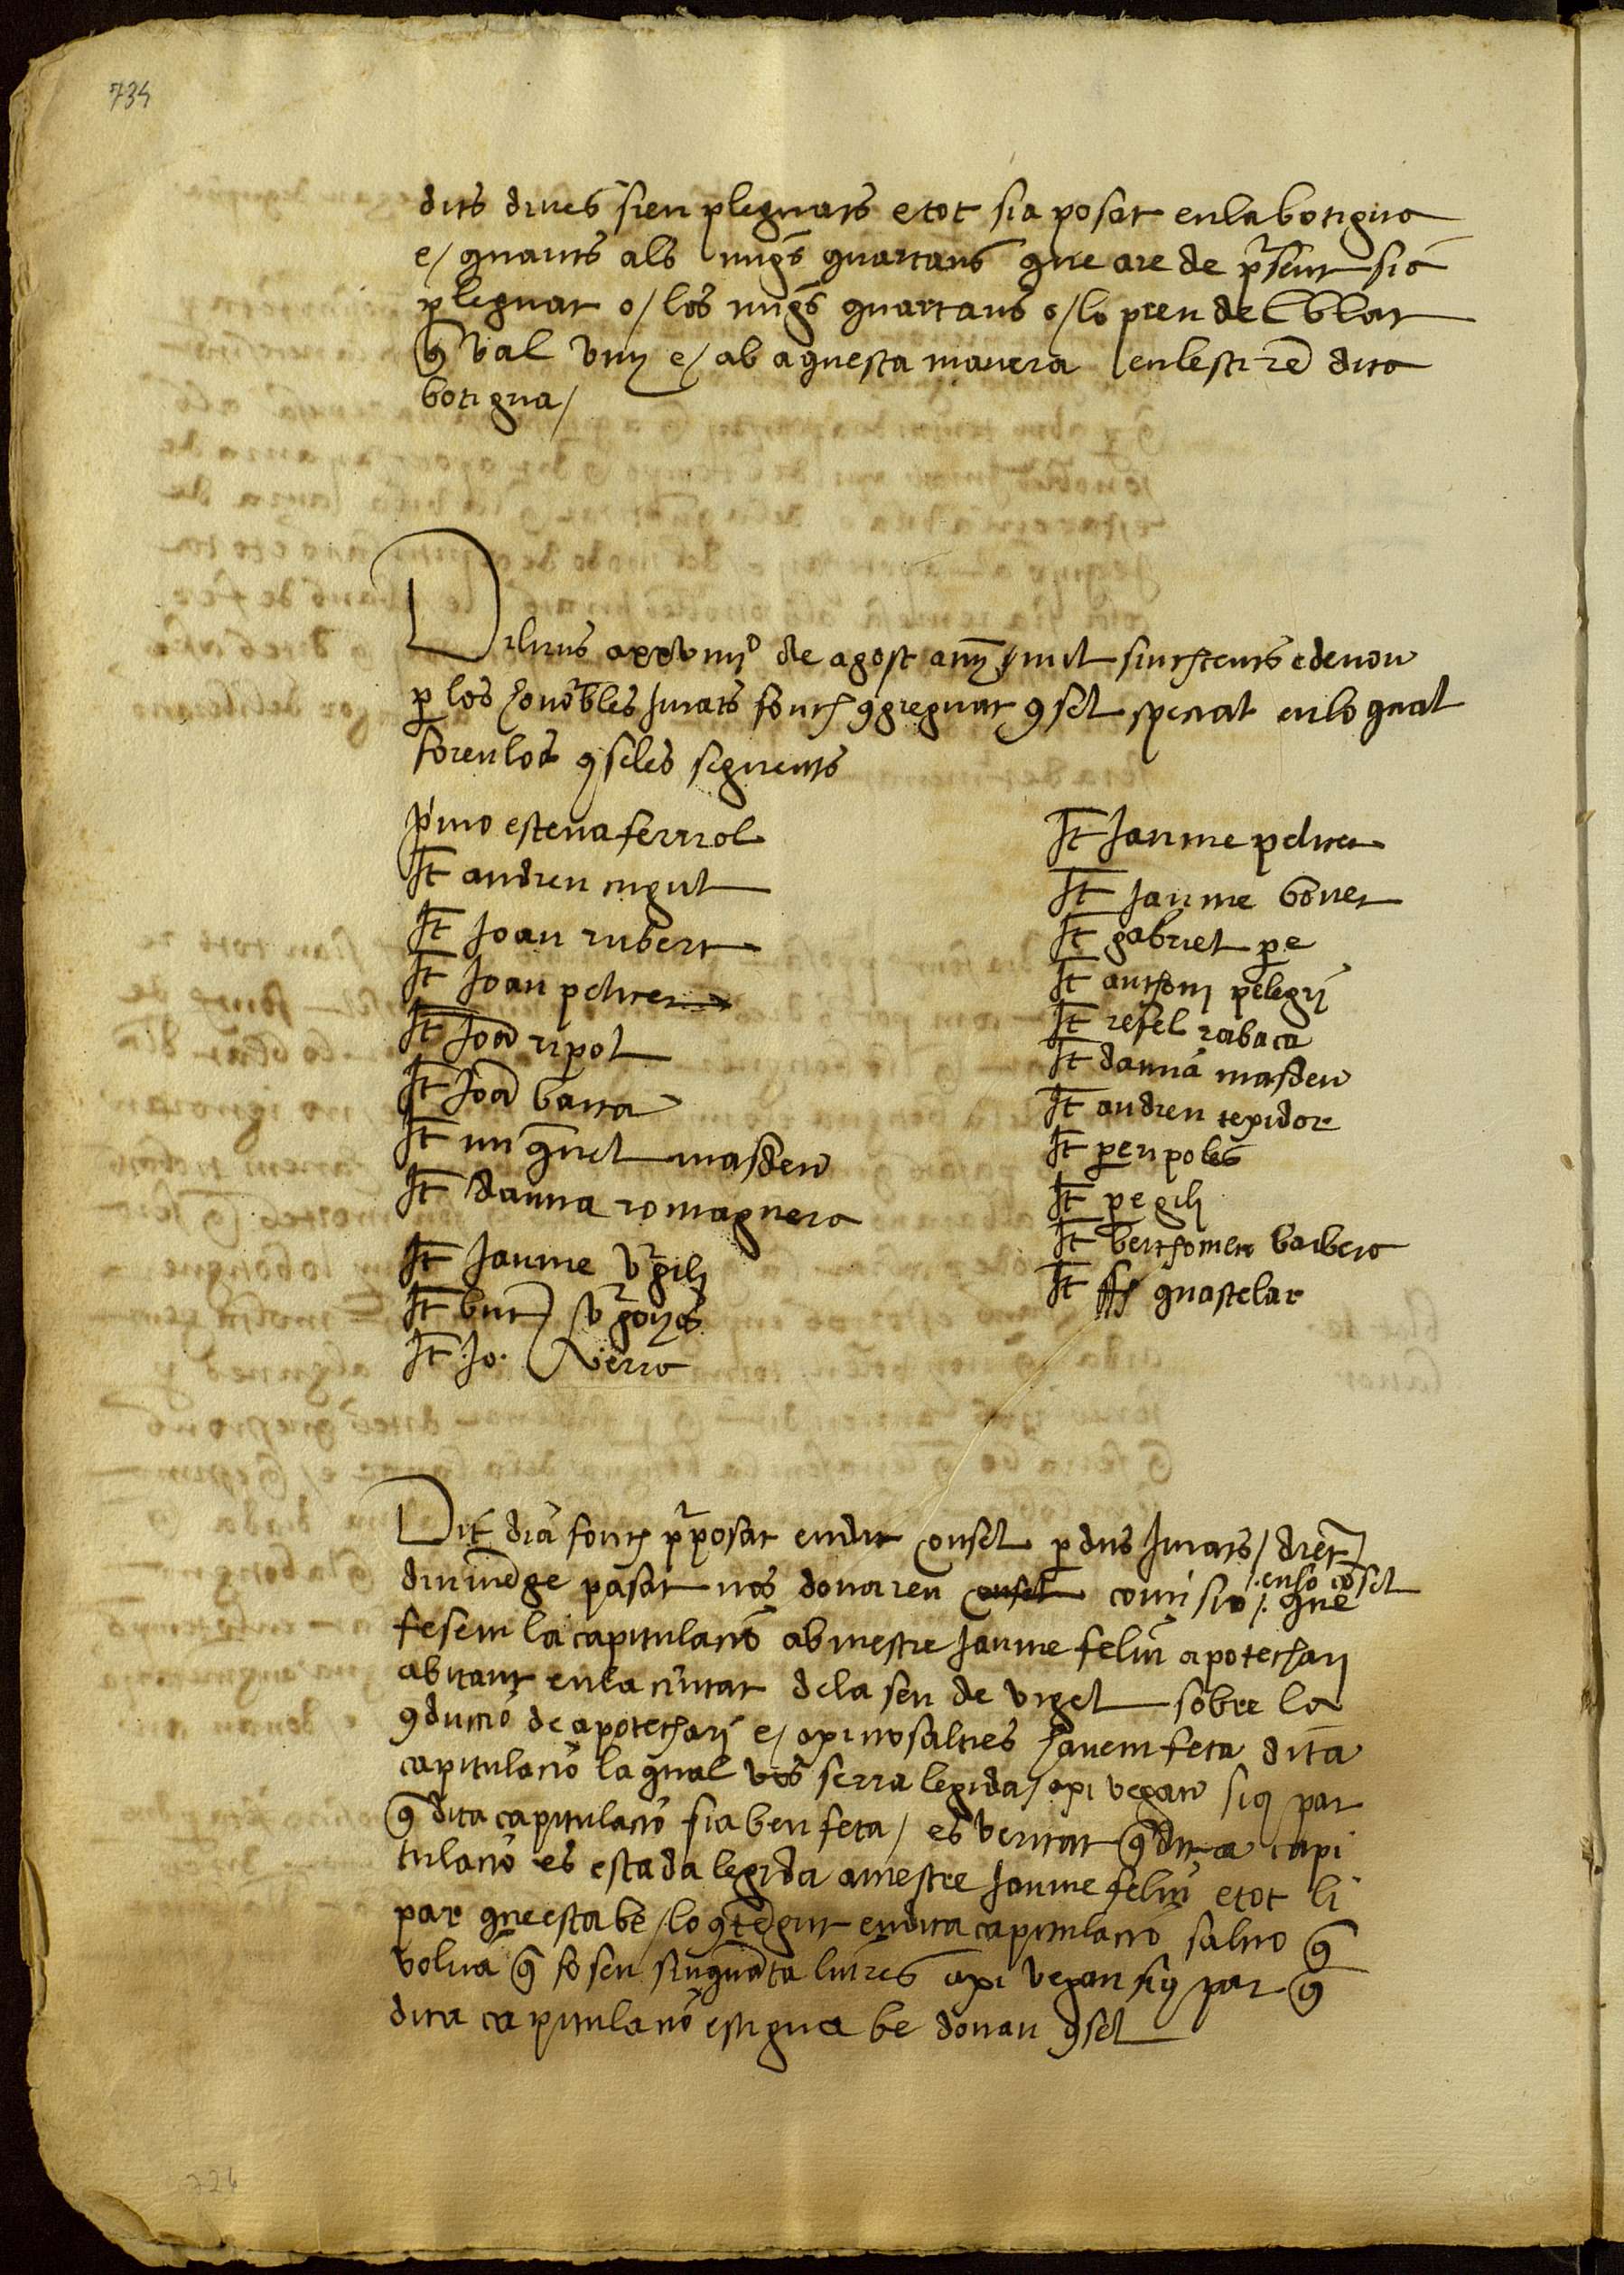 734
dits dines sien pleguats e tot sia posat en la botigua
e/ quants als migs quartans que are de p̃sent sia
pleguat o/ los migs quartans o/ lo preu del blat
q̃ val vuy e/ ab aquesta manera en lestirẽ dita
botigua/
Diluns a xxviiijº de agost any mil sinchcents e denou
p̱ los honõbles Jurats fonch 9greguat 9sel special en lo qual
foren los 9seles seguents
p̃mo esteva ferriol
It andreu migel
It Joan rubert
It Joan peliser
It Joã ripol
It Joã barra
It miq̃uel masdeu
It dauna romaguera
It Jaume v̓gili
It v̓gonyos
It Jo. verro
It Jaume peliser
It Jaume bover
It gabriel pe
It anthoni pelegrj
It refel rabaca
It damiá masdeu
It andreu texidor
It peri poles
It pe gilj
It berthomeu barbera
It guastelar
Dit dia fonch p̃posat en dit consel p̱ dits Jurats/ dient
diumẽge pasat nos donaren consel comisio /. enso cõsel que
fesem la capitulacio ab mestre Jaume feliu apotecharj
abitant en la ciutat de la seu de vrgel sobre la
9ducio de apotecharj e/ axi nosaltres havem feta dita
capitulacio la qual vos serra legida/ axi vegau siq par
q̃ dita capitulacio sia ben feta/ es veritat q̃ dita capi
tulacio es estada legida a mestre Jaume feliu e tot li
par que esta be/ lo 9tẽgut en dita capitulacio salvo q̃
volria q̃ fosen sinquãta liures axi vegau siq par q̃
dita capitulacio estigua be donau 9sel
726